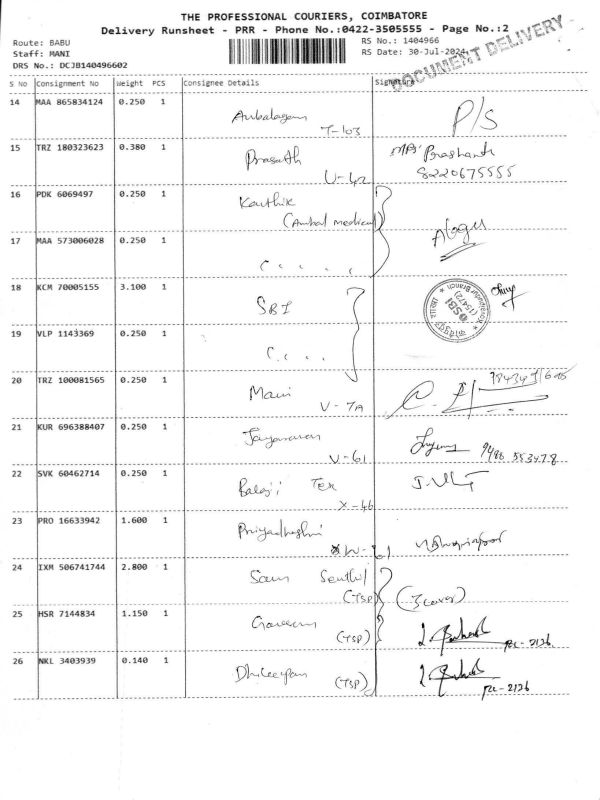 THE PROFESSIONAL COURIERS, COIMBATORE
Delivery Runsheet - PRR - Phone No.:0422-3505555 - Page No.:2
Route: BABU
Staff: MANI
DRS No.: DCJB140496602
RS No.: 1404966
RS Date: 30-Jul-2024
DOCUMENT DELIVERY
S No Consignment No Weight PCS Consignee Details Signature
14 MAA 865834124 0.250 1
T-103 P/S
15 TRZ 180323623 0.380 1
Prasath Prashanth
U-42 8220675555
16 PDK 6069497 0.250 1
Karthik
(Ambal medical)
17 MAA 573006028 0.250 1
18 KCM 70005155 3.100 1
SBI
19 VLP 1143369 0.250 1
20 TRZ 100081565 0.250 1
Mani
V-7A
21 KUR 696388407 0.250 1
V-61
22 SVK 60462714 0.250 1
Balaji Tex
X-46
23 PRO 16633942 1.600 1
24 IXM 506741744 2.800 1
Sam Senthil
(TSP) (3 cover)
25 HSR 7144834 1.150 1
(TSP) pc-2136
26 NKL 3403939 0.140 1
Dhileepan (TSP) pc-2136